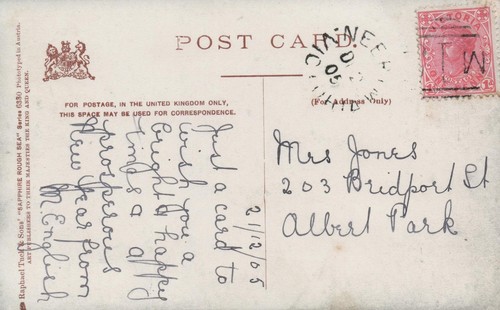 POST CARD.
FOR POSTAGE, IN THE UNITED KINGDOM ONLY,
THIS SPACE MAY BE USED FOR CORRESPONDENCE.
(For Address Only)
Raphael Tuck & Sons' "SAPPHIRE ROUGH SEA" Series Phototyped in Austria.
ART PUBLISHERS TO THEIR MAJESTIES THE KING AND QUEEN.
2/12/05
Just a card to
wish you a
bright & happy
Xmas & a
prosperous
New Year from
M English
Mrs Jones
203 Bridport St
Albert Park.